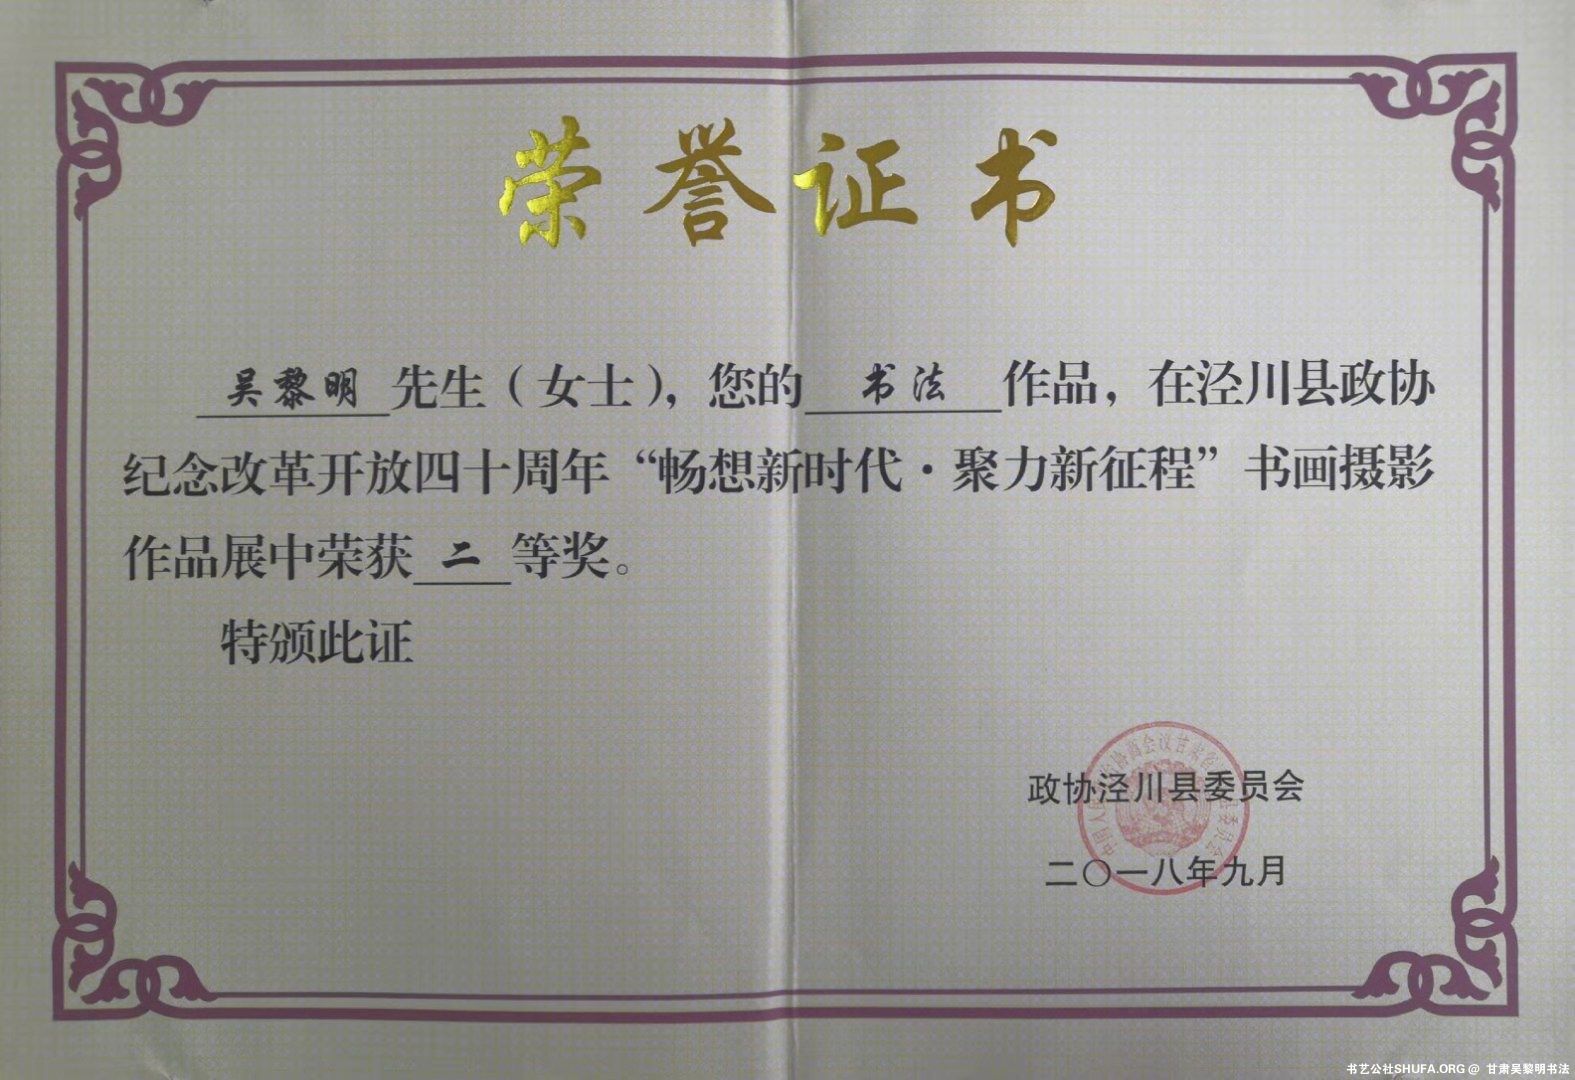 荣誉证书
吴黎明先生（女士），您的书法作品，在泾川县政协
纪念改革开放四十周年“畅想新时代·聚力新征程”书画摄影
作品展中荣获二等奖。
特颁此证
政协泾川县委员会
二〇一八年九月
书艺公社SHUFA.ORG @ 甘肃吴黎明书法